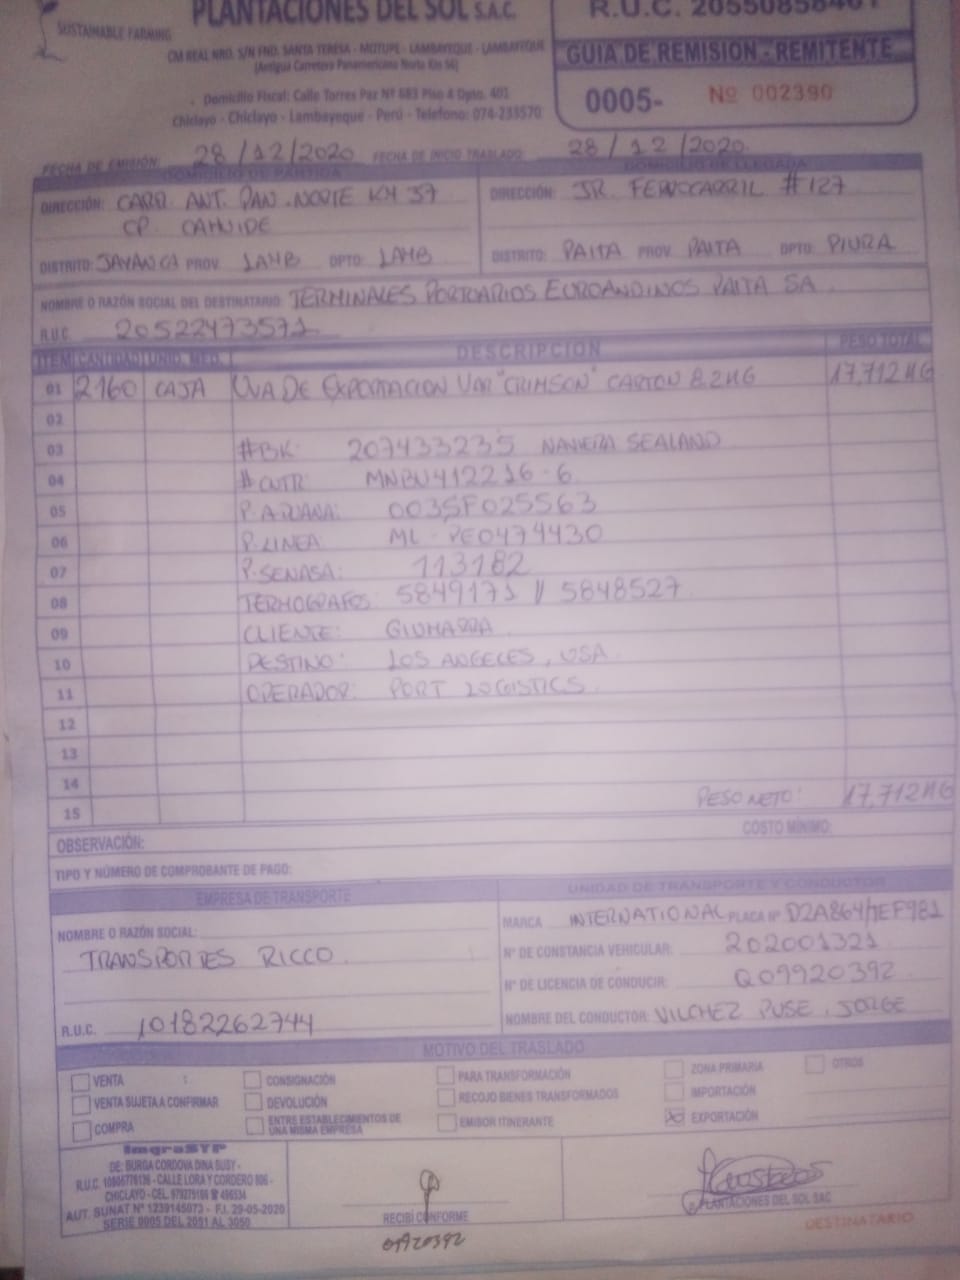 PLANTACIONES DEL SOL S.A.C.
SUSTAINABLE FARMING
CM REAL NRO. S/N FND. SANTA TERESA - MOTUPE - LAMBAYEQUE - LAMBAYEQUE
(Antigua Carretera Panamericana Norte Km 56)
Domicilio Fiscal: Calle Torres Paz Nº 683 Piso 4 Dpto. 401
Chiclayo - Chiclayo - Lambayeque - Perú - Telefono: 074-233570
R.U.C. 20550858461
GUIA DE REMISION - REMITENTE
0005- Nº 002390
FECHA DE EMISIÓN: 28/12/2020 FECHA DE INICIO TRASLADO: 28/12/2020
DOMICILIO DE PARTIDA DOMICILIO DE LLEGADA
DIRECCIÓN: CARR. ANT. PAN. NORTE KM 37
CP. CAHUIDE
DIRECCIÓN: JR. FERROCARRIL #127
DISTRITO: JAYANCA PROV. LAMB DPTO: LAMB
DISTRITO: PAITA PROV. PAITA DPTO: PIURA
NOMBRE O RAZÓN SOCIAL DEL DESTINATARIO: TERMINALES PORTUARIOS EUROANDINOS PAITA SA
R.U.C. 20522473571
ITEM CANTIDAD UNID. MED. DESCRIPCION PESO TOTAL
01 2160 CAJA UVA DE EXPORTACION VAR "CRIMSON" CARTON 8.2KG 17,712KG
02
03 #BK: 207433235 NAVIERA SEALAND
04 # CNTR: MNBU412216-6
05 P. ADUANA: 003SF025563
06 P. LINEA: ML-PE0474430
07 P. SENASA: 113182
08 TERMOGRAFOS: 5849171 // 5848527
09 CLIENTE: GIUMARRA
10 DESTINO: LOS ANGELES, USA
11 OPERADOR: PORT LOGISTICS
12
13
14
15 PESO NETO: 17,712KG
OBSERVACIÓN: COSTO MÍNIMO:
TIPO Y NÚMERO DE COMPROBANTE DE PAGO:
EMPRESA DE TRANSPORTE
NOMBRE O RAZÓN SOCIAL:
TRANSPORTES RICCO
R.U.C. 10182262744
UNIDAD DE TRANSPORTE Y CONDUCTOR
MARCA INTERNATIONAL PLACA Nº D2A864/TEF981
Nº DE CONSTANCIA VEHICULAR: 202001321
Nº DE LICENCIA DE CONDUCIR: Q09920392
NOMBRE DEL CONDUCTOR: VILCHEZ PUSE, JORGE
MOTIVO DEL TRASLADO
VENTA CONSIGNACIÓN PARA TRANSFORMACIÓN ZONA PRIMARIA OTROS
VENTA SUJETA A CONFIRMAR DEVOLUCIÓN RECOJO BIENES TRANSFORMADOS IMPORTACIÓN
COMPRA ENTRE ESTABLECIMIENTOS DE UNA MISMA EMPRESA EMISOR ITINERANTE EXPORTACIÓN
ImgraSYP
DE: BURGA CORDOVA DINA SUSY -
R.U.C. 10806778126 - CALLE LORA Y CORDERO 806 -
CHICLAYO - CEL. 979279188 ☎ 496534
AUT. SUNAT Nº 1239145073 - F.I. 29-05-2020
SERIE 0005 DEL 2051 AL 3050
RECIBÍ CONFORME
09920392
P/PLANTACIONES DEL SOL SAC
DESTINATARIO